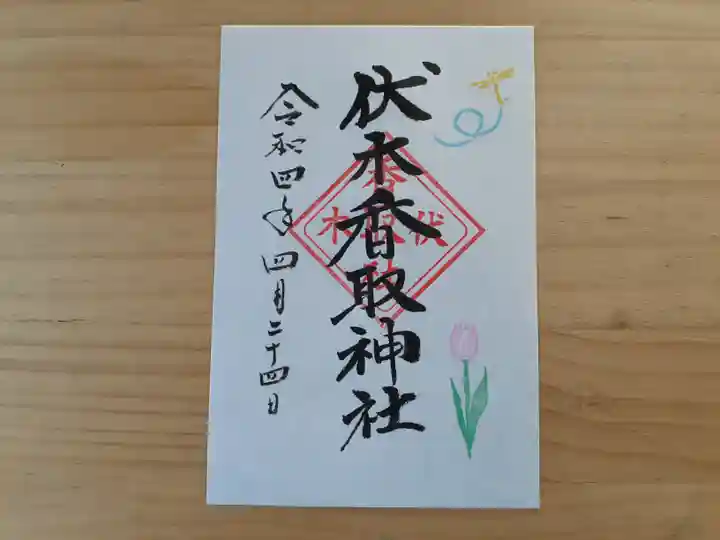 伏木香取神社
令和四年四月二十四日
香取
伏木
社